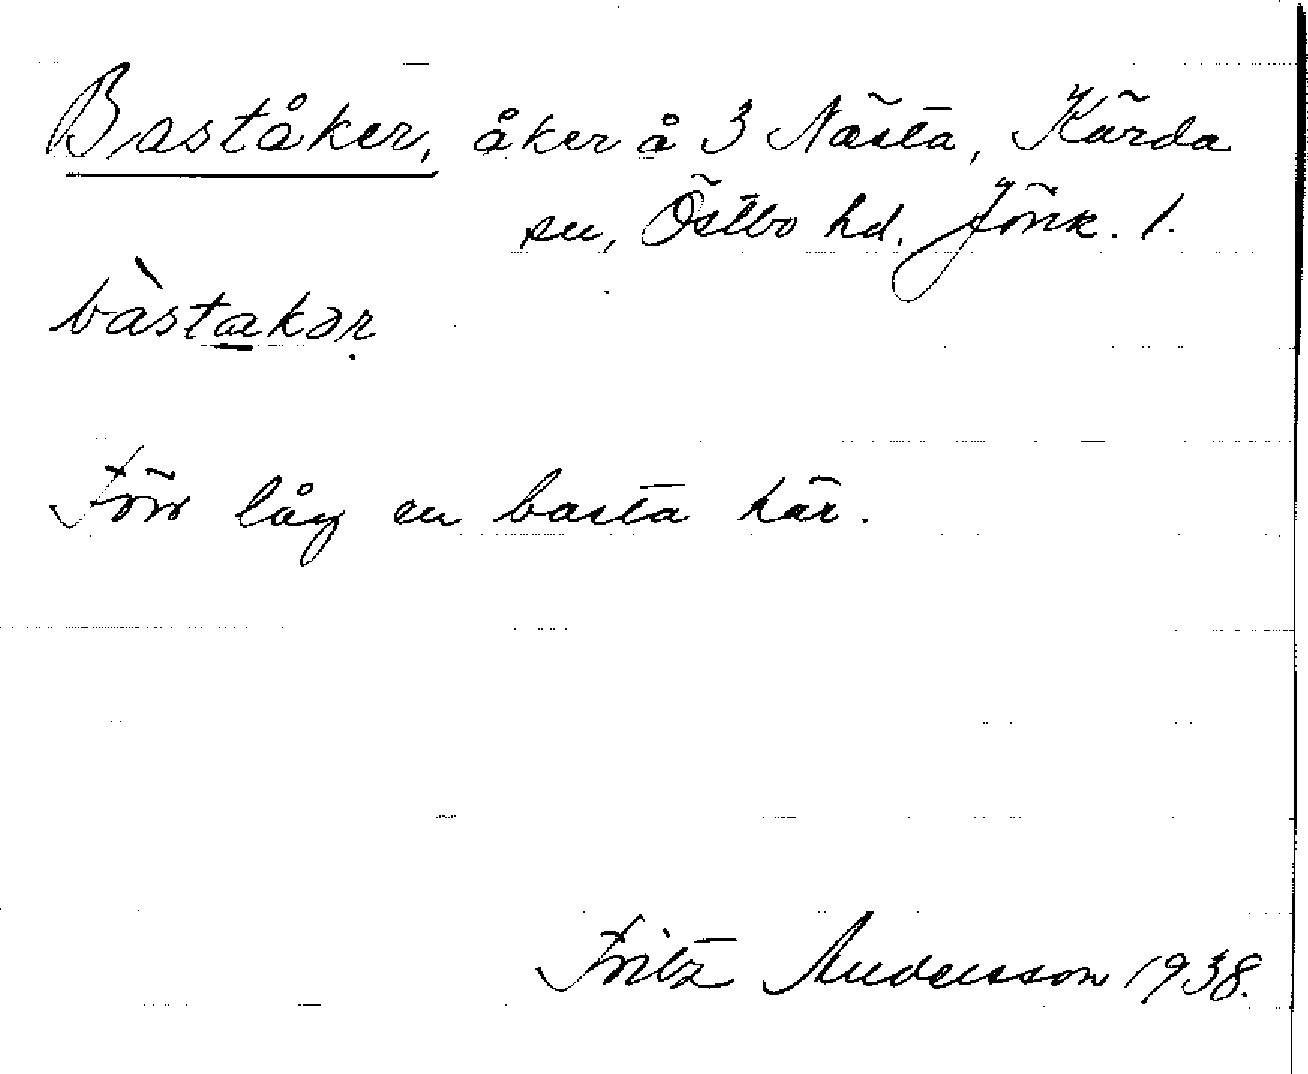 Baståker, åker å 3 Nästa, Kärda
sn, Östbo hd. Jönk. l.
bàstakər
Förr låg en basta här.
Fritz Andersson 1938.